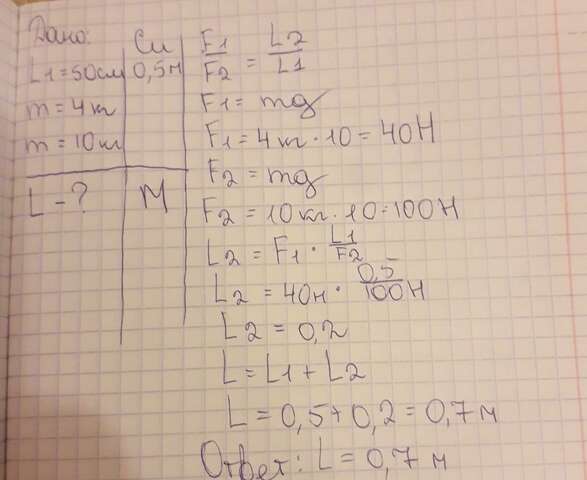 Дано:
Си
L1=50см
0,5м
m=4кг
m=10кг
L-?
М
F1/F2 = L2/L1
F1=mg
F1=4кг·10=40Н
F2=mg
F2=10кг·10=100Н
L2=F1·L1/F2
L2=40н·0,5/100Н
L2=0,2
L=L1+L2
L=0,5+0,2=0,7м
Ответ: L=0,7м